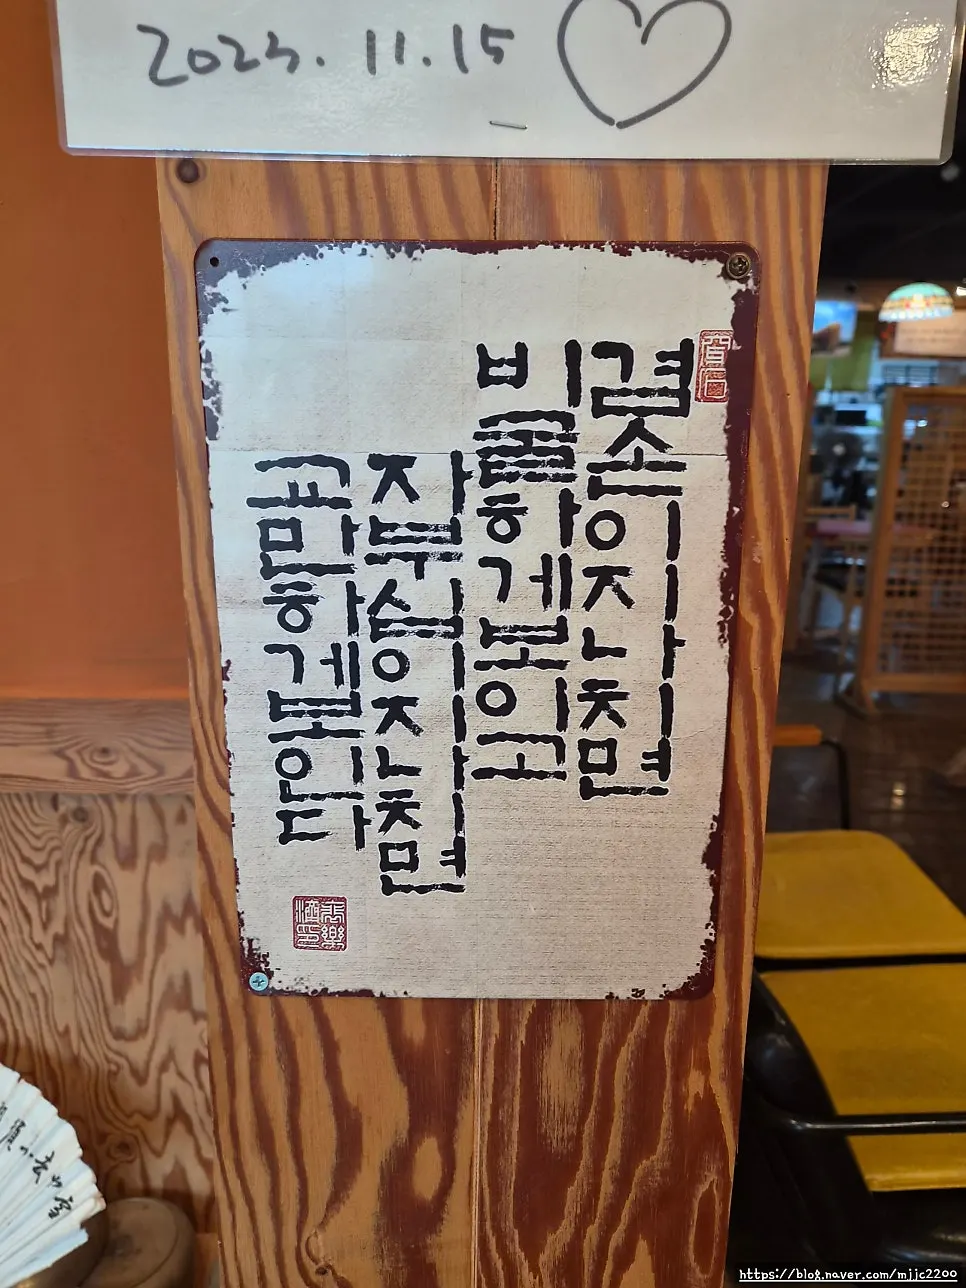 2023. 11.15
겸손이지나치면
비굴하게보이고
자부심이지나치면
교만하게보인다
https://blog.naver.com/mijc2200